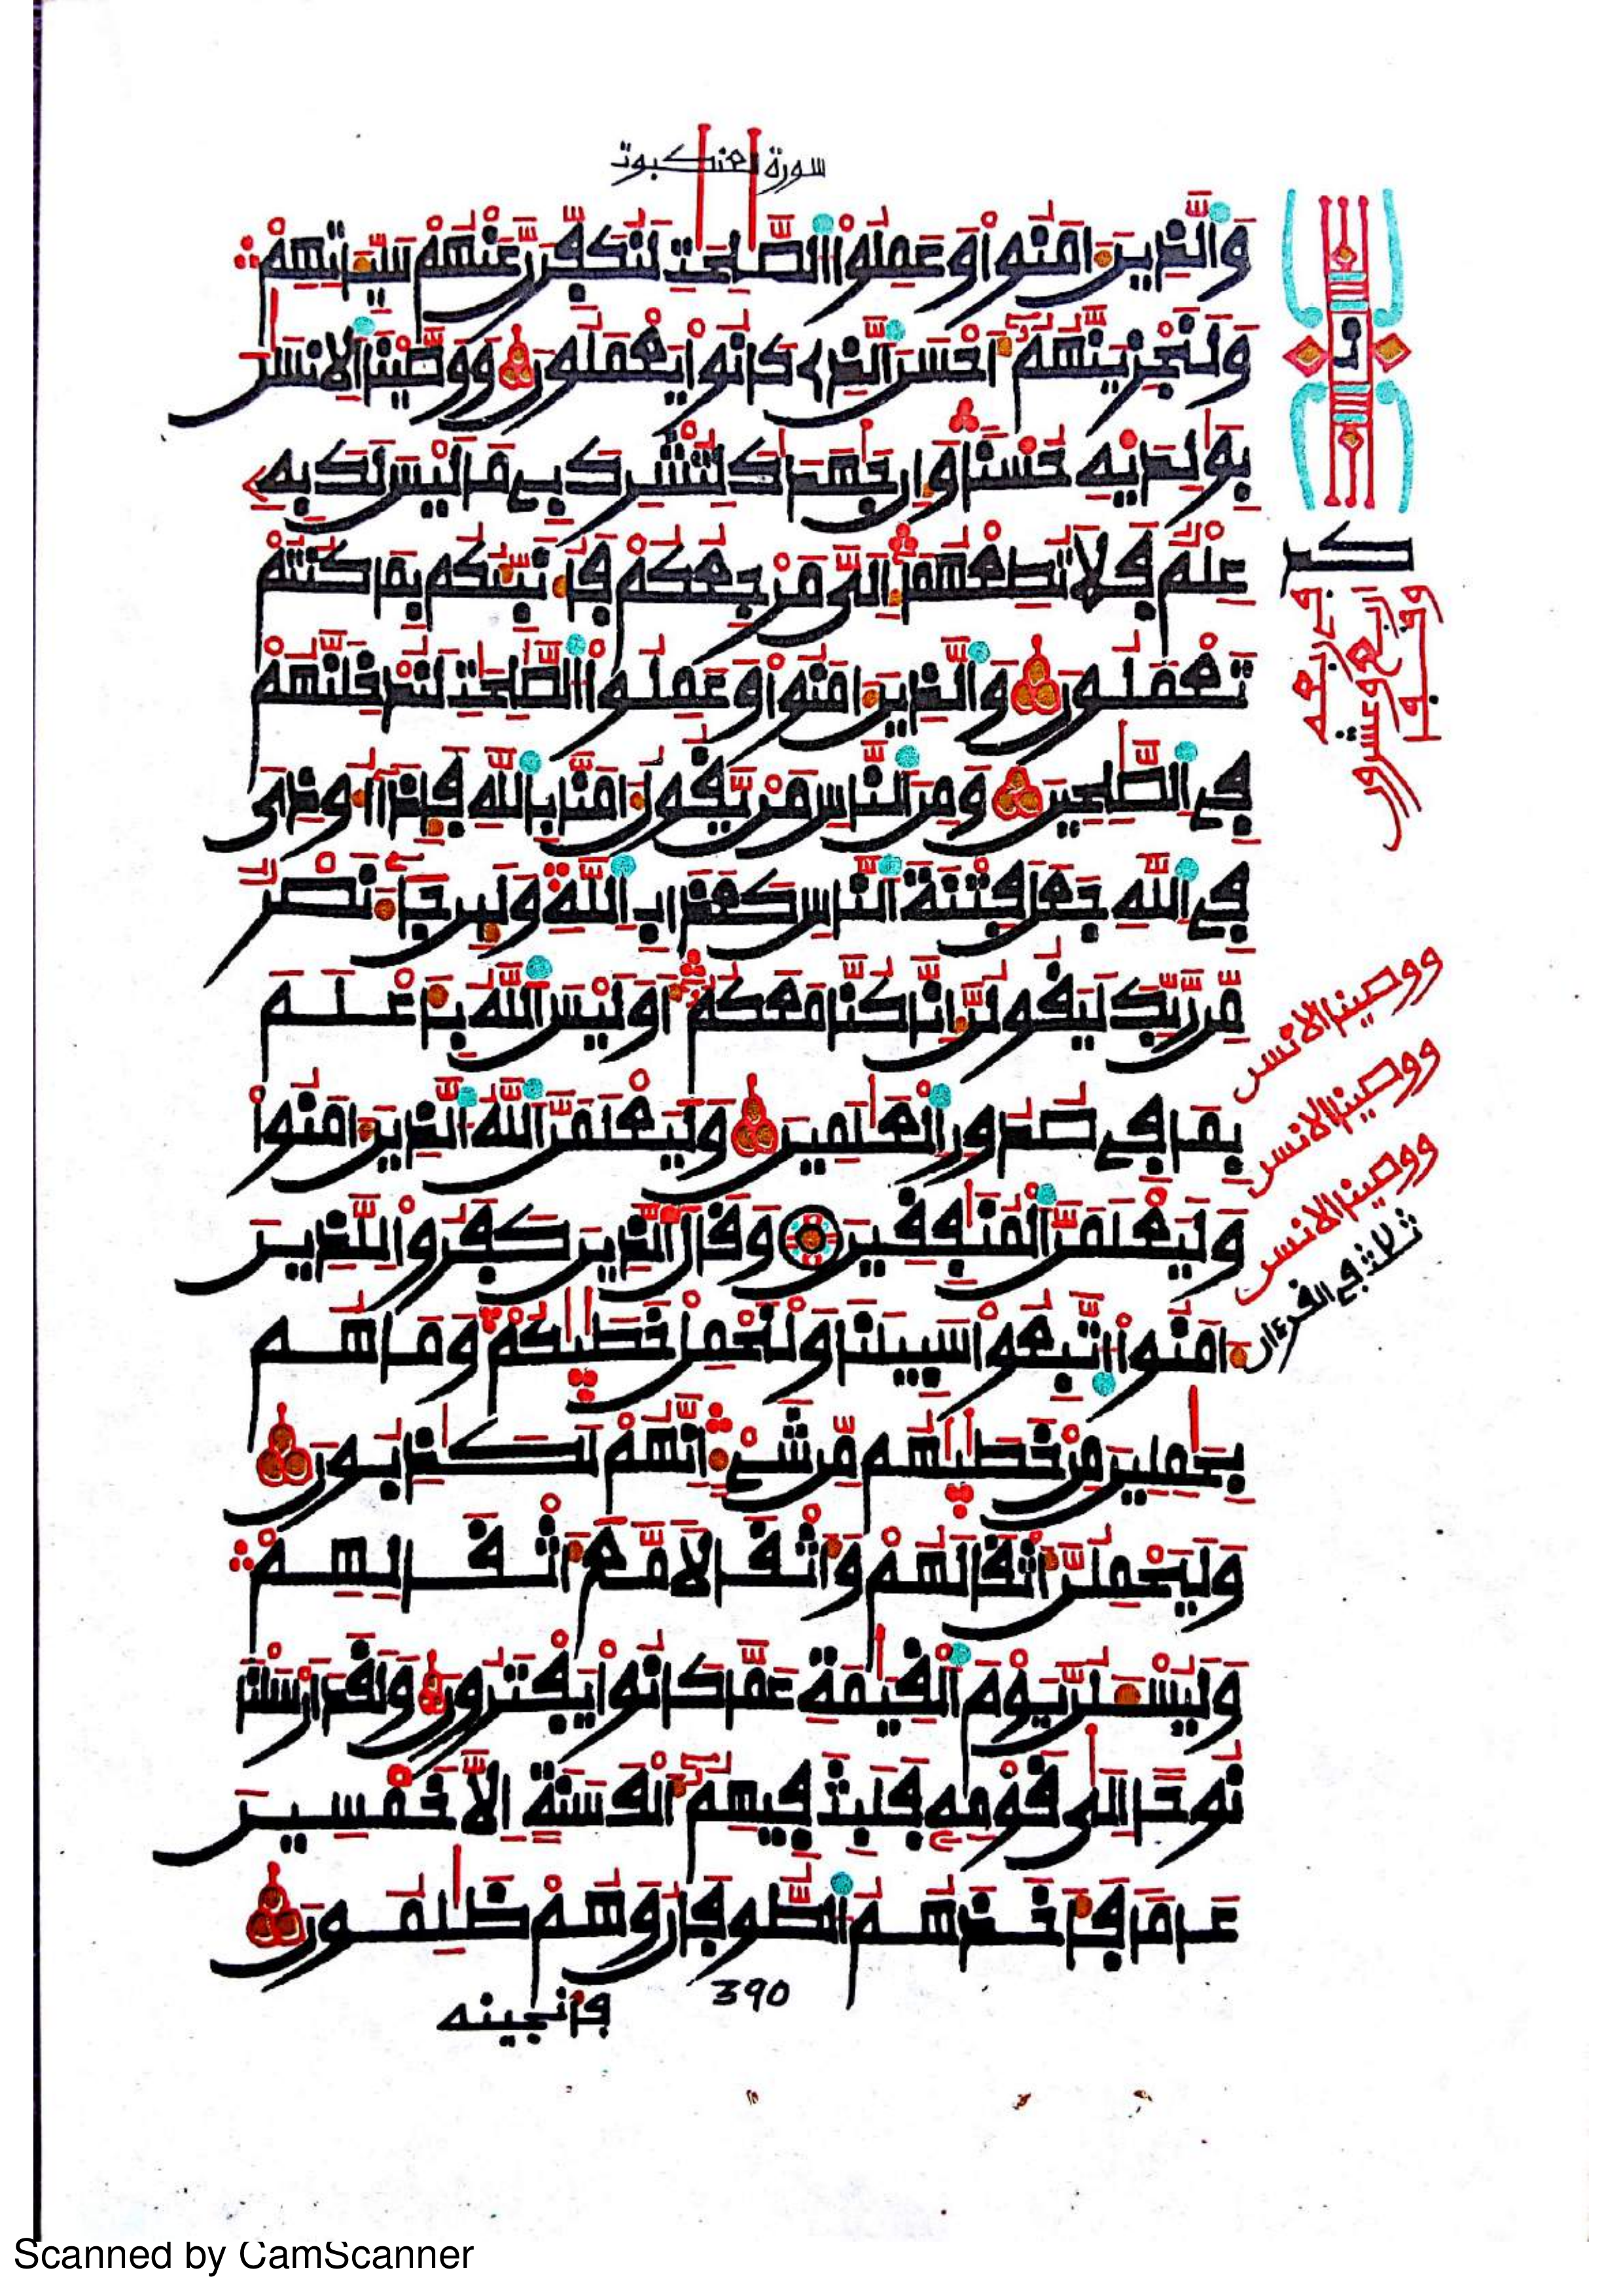 سورة العنكبوت
وَالذِينَ ءَامَنُواْ وَعَمِلُواْ الصَّٰلِحَٰتِ لَنُكَفِّرَنَّ عَنْهُمْ سَيِّـَٔاتِهِمْ
وَلَنَجْزِيَنَّهُمُۥٓ أَحْسَنَ الذِے كَانُواْ يَعْمَلُونَ وَوَصَّيْنَا الِانسَٰنَ
بِوَٰلِدَيْهِ حُسْناً وَإِن جَٰهَدَٰكَ لِتُشْرِكَ بِے مَا لَيْسَ لَكَ بِهِۦ
عِلْمٌ فَلَا تُطِعْهُمَآ إِلَيَّ مَرْجِعُكُمْ فَأُنَبِّئُكُم بِمَا كُنتُمْ
تَعْمَلُونَ وَالذِينَ ءَامَنُواْ وَعَمِلُواْ الصَّٰلِحَٰتِ لَنُدْخِلَنَّهُمْ
فِے الصَّٰلِحِينَ وَمِنَ النَّاسِ مَنْ يَّقُولُ ءَامَنَّا بِاللَّهِ فَإِذَآ أُوذِيَ
فِے اللَّهِ جَعَلَ فِتْنَةَ النَّاسِ كَعَذَابِ اللَّهِ وَلَئِن جَآءَ نَصْرٌ
مِّن رَّبِّكَ لَيَقُولُنَّ إِنَّا كُنَّا مَعَكُمُۥٓ أَوَلَيْسَ اللَّهُ بِأَعْلَمَ
بِمَا فِے صُدُورِ الْعَٰلَمِينَ وَلَيَعْلَمَنَّ اللَّهُ الذِينَ ءَامَنُواْ
وَلَيَعْلَمَنَّ الْمُنَٰفِقِينَ وَقَالَ الذِينَ كَفَرُواْ لِلذِينَ
ءَامَنُواْ اتَّبِعُواْ سَبِيلَنَا وَلْنَحْمِلْ خَطَٰيَٰكُمْ وَمَا هُم
بِحَٰمِلِينَ مِنْ خَطَٰيَٰهُم مِّن شَےْءٍ إِنَّهُمْ لَكَٰذِبُونَ
وَلَيَحْمِلُنَّ أَثْقَالَهُمْ وَأَثْقَالاً مَّعَ أَثْقَالِهِمْ
وَلَيُسْـَٔلُنَّ يَوْمَ الْقِيَٰمَةِ عَمَّا كَانُواْ يَفْتَرُونَ وَلَقَدَ اَرْسَلْنَا
نُوحاً إِلَىٰ قَوْمِهِۦ فَلَبِثَ فِيهِمُۥٓ أَلْفَ سَنَةٍ إِلَّا خَمْسِينَ
عَاماً فَأَخَذَهُمُ الطُّوفَانُ وَهُمْ ظَٰلِمُونَ
390
فأنجينه
ووصينا الانسن
ووصينا الانسن
ووصينا الانسن
ثلاثة في القرءان
Scanned by CamScanner